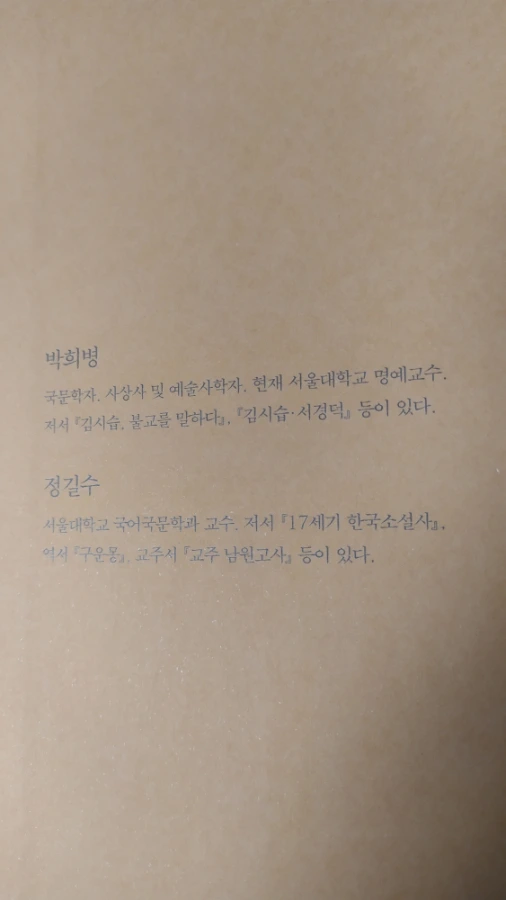 박희병
국문학자. 사상사 및 예술사학자. 현재 서울대학교 명예교수.
저서 『김시습, 불교를 말하다』, 『김시습·서경덕』 등이 있다.
정길수
서울대학교 국어국문학과 교수. 저서 『17세기 한국소설사』,
역서 『구운몽』, 교주서 『교주 남원고사』 등이 있다.